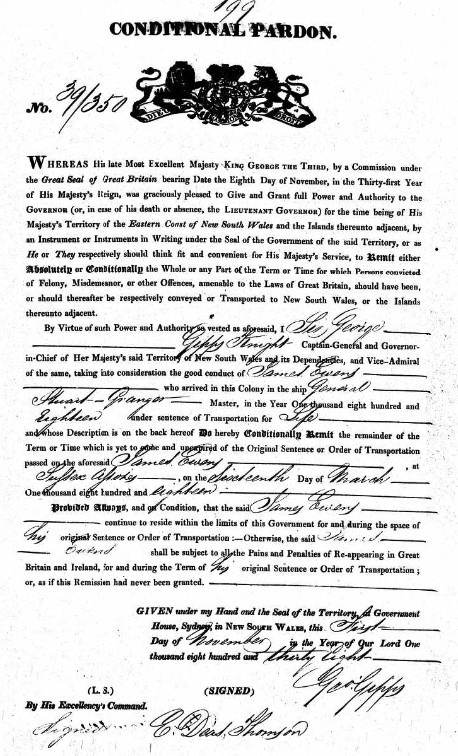 199
CONDITIONAL PARDON.
No. 39/350
DIEU ET MON DROIT
WHEREAS His late Most Excellent Majesty KING GEORGE THE THIRD, by a Commission under
the Great Seal of Great Britain bearing Date the Eighth Day of November, in the Thirty-first Year
of His Majesty's Reign, was graciously pleased to Give and Grant full Power and Authority to the
GOVERNOR (or, in case of his death or absence, the LIEUTENANT GOVERNOR) for the time being of His
Majesty's Territory of the Eastern Coast of New South Wales and the Islands thereunto adjacent, by
an Instrument or Instruments in Writing under the Seal of the Government of the said Territory, or as
He or They respectively should think fit and convenient for His Majesty's Service, to Remit either
Absolutely or Conditionally the Whole or any Part of the Term or Time for which Persons convicted
of Felony, Misdemeanor, or other Offences, amenable to the Laws of Great Britain, should have been,
or should thereafter be respectively conveyed or Transported to New South Wales, or the Islands
thereunto adjacent.
By Virtue of such Power and Authority so vested as aforesaid, I Sir George
Gipps Knight Captain-General and Governor-
in-Chief of Her Majesty's said Territory of New South Wales and its Dependencies, and Vice-Admiral
of the same, taking into consideration the good conduct of James Ewens
who arrived in this Colony in the ship General
Stuart – Granger – Master, in the Year One thousand eight hundred and
Eighteen under sentence of Transportation for Life
and whose Description is on the back hereof Do hereby Conditionally Remit the remainder of the
Term or Time which is yet to come and unexpired of the Original Sentence or Order of Transportation
passed on the aforesaid James Ewens, at
Sussex Assizes, on the Sixteenth Day of March
One thousand eight hundred and eighteen
Provided Always, and on Condition, that the said James Ewens
continue to reside within the limits of this Government for and during the space of
his original Sentence or Order of Transportation :—Otherwise, the said James
Ewens shall be subject to all the Pains and Penalties of Re-appearing in Great
Britain and Ireland, for and during the Term of his original Sentence or Order of Transportation ;
or, as if this Remission had never been granted.
GIVEN under my Hand and the Seal of the Territory, at Government
House, Sydney, in NEW SOUTH WALES, this First
Day of November in the Year of Our Lord One
thousand eight hundred and thirty Eight
(L. S.) (SIGNED) Geo. Gipps
By His Excellency's Command.
Signed E Deas Thomson